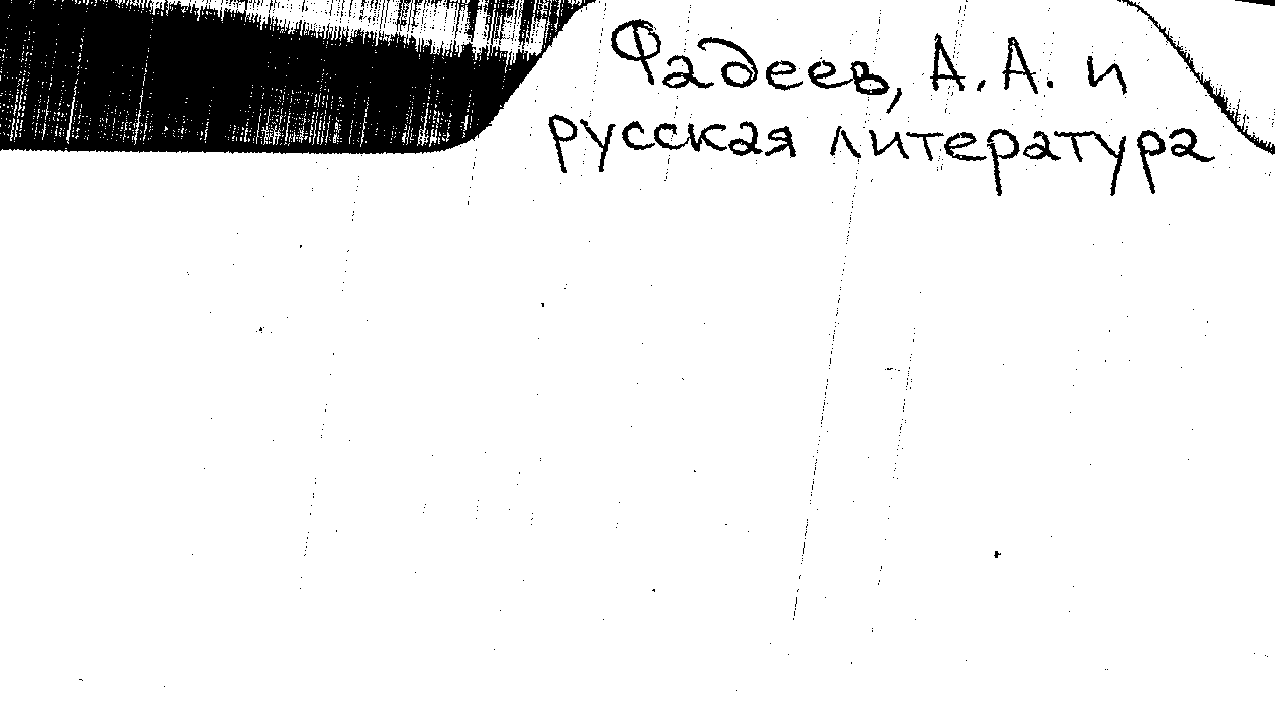 Фадеев, А.А. и
русская литература